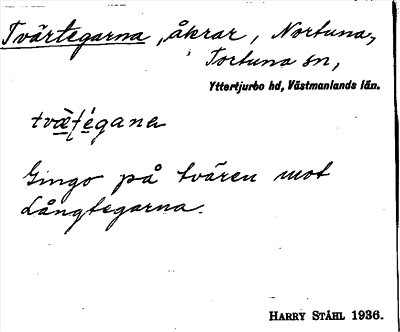 Tvärtegarna, åkrar, Nortuna,
Tortuna sn,
Yttertjurbo hd, Västmanlands län.
tvæ̀ʈégana
Gingo på tvären mot
Långtegarna.
HARRY STÅHL 1936.